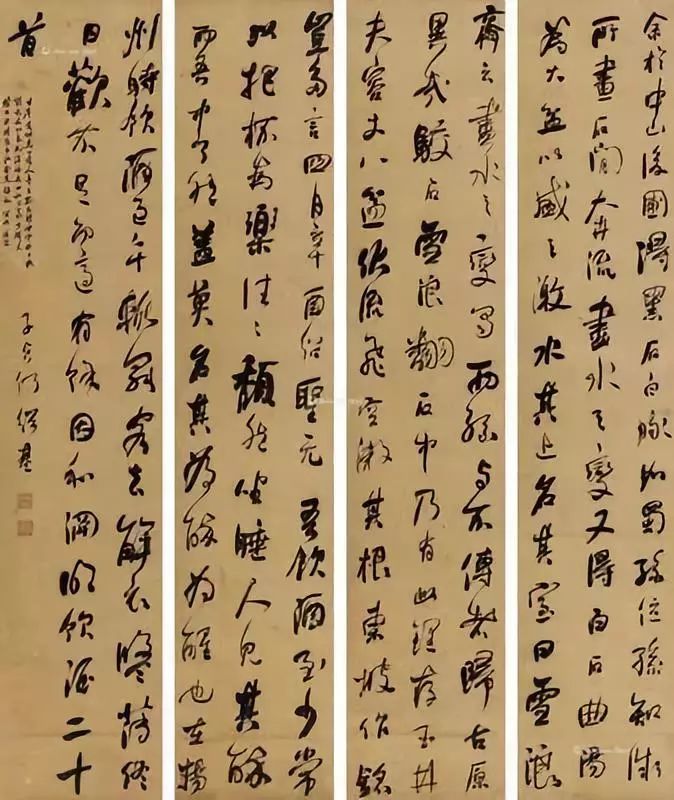 余於中山後圃得黑石白脉如蜀孫位孫知微
所畫石間奔流盡水之變又得白石曲陽
為大盆以盛之激水其上名其室曰雪浪
齋云盡水之變蜀兩孫與不傳者歸九原
異哉駁石雪浪翻石中乃有此理存玉井
夫容丈八盆伏流飛空漱其根東坡作銘
豈多言四月辛酉紹聖元吾飲酒至少常
以把杯為樂往往頹然坐睡人見其醉
而吾中了然蓋莫名其為醉為醒也在揚
州時飲酒過午輒罷客去解衣盤礴終
日歡不足而適有餘因和淵明飲酒二十
首
子貞何紹基